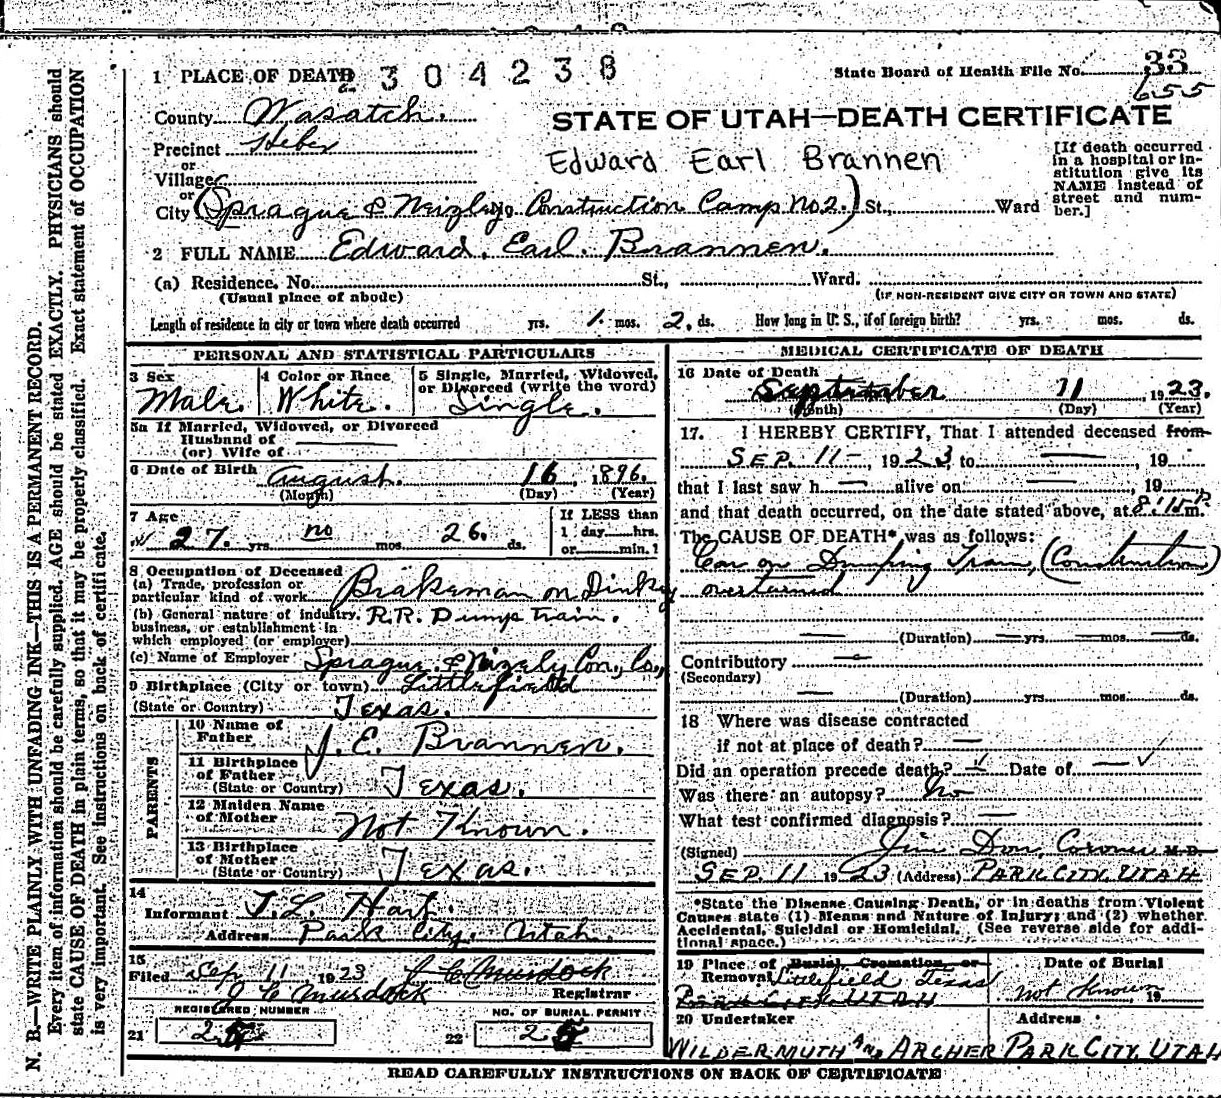 1 PLACE OF DEATH 2304238
State Board of Health File No. 33
655
County Wasatch.
STATE OF UTAH—DEATH CERTIFICATE
Precinct Heber
Edward Earl Brannen
or
Village
or
City (Sprague & Construction Camp No 2.) St., Ward
[If death occurred
in a hospital or in-
stitution give its
NAME instead of
street and num-
ber.]
2 FULL NAME Edward. Earl. Brannen.
(a) Residence. No. St., Ward.
(Usual place of abode)
(IF NON-RESIDENT GIVE CITY OR TOWN AND STATE)
Length of residence in city or town where death occurred yrs. 1 mos. 2. ds. How long in U. S., if of foreign birth? yrs. mos. ds.
PERSONAL AND STATISTICAL PARTICULARS
3 Sex
Male.
4 Color or Race
White.
5 Single, Married, Widowed,
or Divorced (write the word)
Single.
5a If Married, Widowed, or Divorced
Husband of
(or) Wife of
6 Date of Birth August. 16, 1896.
(Month) (Day) (Year)
7 Age
27. yrs. no mos. 26. ds.
If LESS than
1 day hrs.
or min.?
8 Occupation of Deceased
(a) Trade, profession or
particular kind of work Brakeman on Dinkey
(b) General nature of industry, R.R. Dump train.
business, or establishment in
which employed (or employer)
(c) Name of Employer Sprague & Con., Co.,
9 Birthplace (City or town) Littlefield
(State or Country) Texas.
PARENTS
10 Name of
Father J. E. Brannen.
11 Birthplace
of Father
(State or Country) Texas.
12 Maiden Name
of Mother Not Known.
13 Birthplace
of Mother
(State or Country) Texas.
14
Informant T. L. Hart.
Address Park City, Utah.
15
Filed Sep 11 1923 J C Murdock
J C Murdock Registrar
REGISTERED NUMBER
21
NO. OF BURIAL PERMIT
22
MEDICAL CERTIFICATE OF DEATH
16 Date of Death
September 11, 1923.
(Month) (Day) (Year)
17. I HEREBY CERTIFY, That I attended deceased from
SEP. 11 — , 1923 to — , 19
that I last saw h — alive on — , 19
and that death occurred, on the date stated above, at 8:15 P m.
The CAUSE OF DEATH* was as follows:
Car on Dumping Train, (Construction)
overturned
— (Duration) — yrs. — mos. — ds.
Contributory —
(Secondary)
— (Duration) yrs. mos. ds.
18 Where was disease contracted
if not at place of death? —
Did an operation precede death? Date of —
Was there an autopsy? No
What test confirmed diagnosis? —
(Signed) Jim Don, Coroner M.D.
SEP. 11 1923 (Address) PARK CITY, UTAH
*State the Disease Causing Death, or in deaths from Violent
Causes state (1) Means and Nature of Injury; and (2) whether
Accidental, Suicidal or Homicidal. (See reverse side for addi-
tional space.)
19 Place of Burial Cremation or
Removal Littlefield Texas
Park City UTAH
Date of Burial
not known 19
20 Undertaker Address
WILDERMUTH And ARCHER PARK CITY, UTAH
READ CAREFULLY INSTRUCTIONS ON BACK OF CERTIFICATE
N. B.—WRITE PLAINLY WITH UNFADING INK—THIS IS A PERMANENT RECORD.
Every item of information should be carefully supplied. AGE should be stated EXACTLY. PHYSICIANS should
state CAUSE OF DEATH in plain terms, so that it may be properly classified. Exact statement of OCCUPATION
is very important. See instructions on back of certificate.